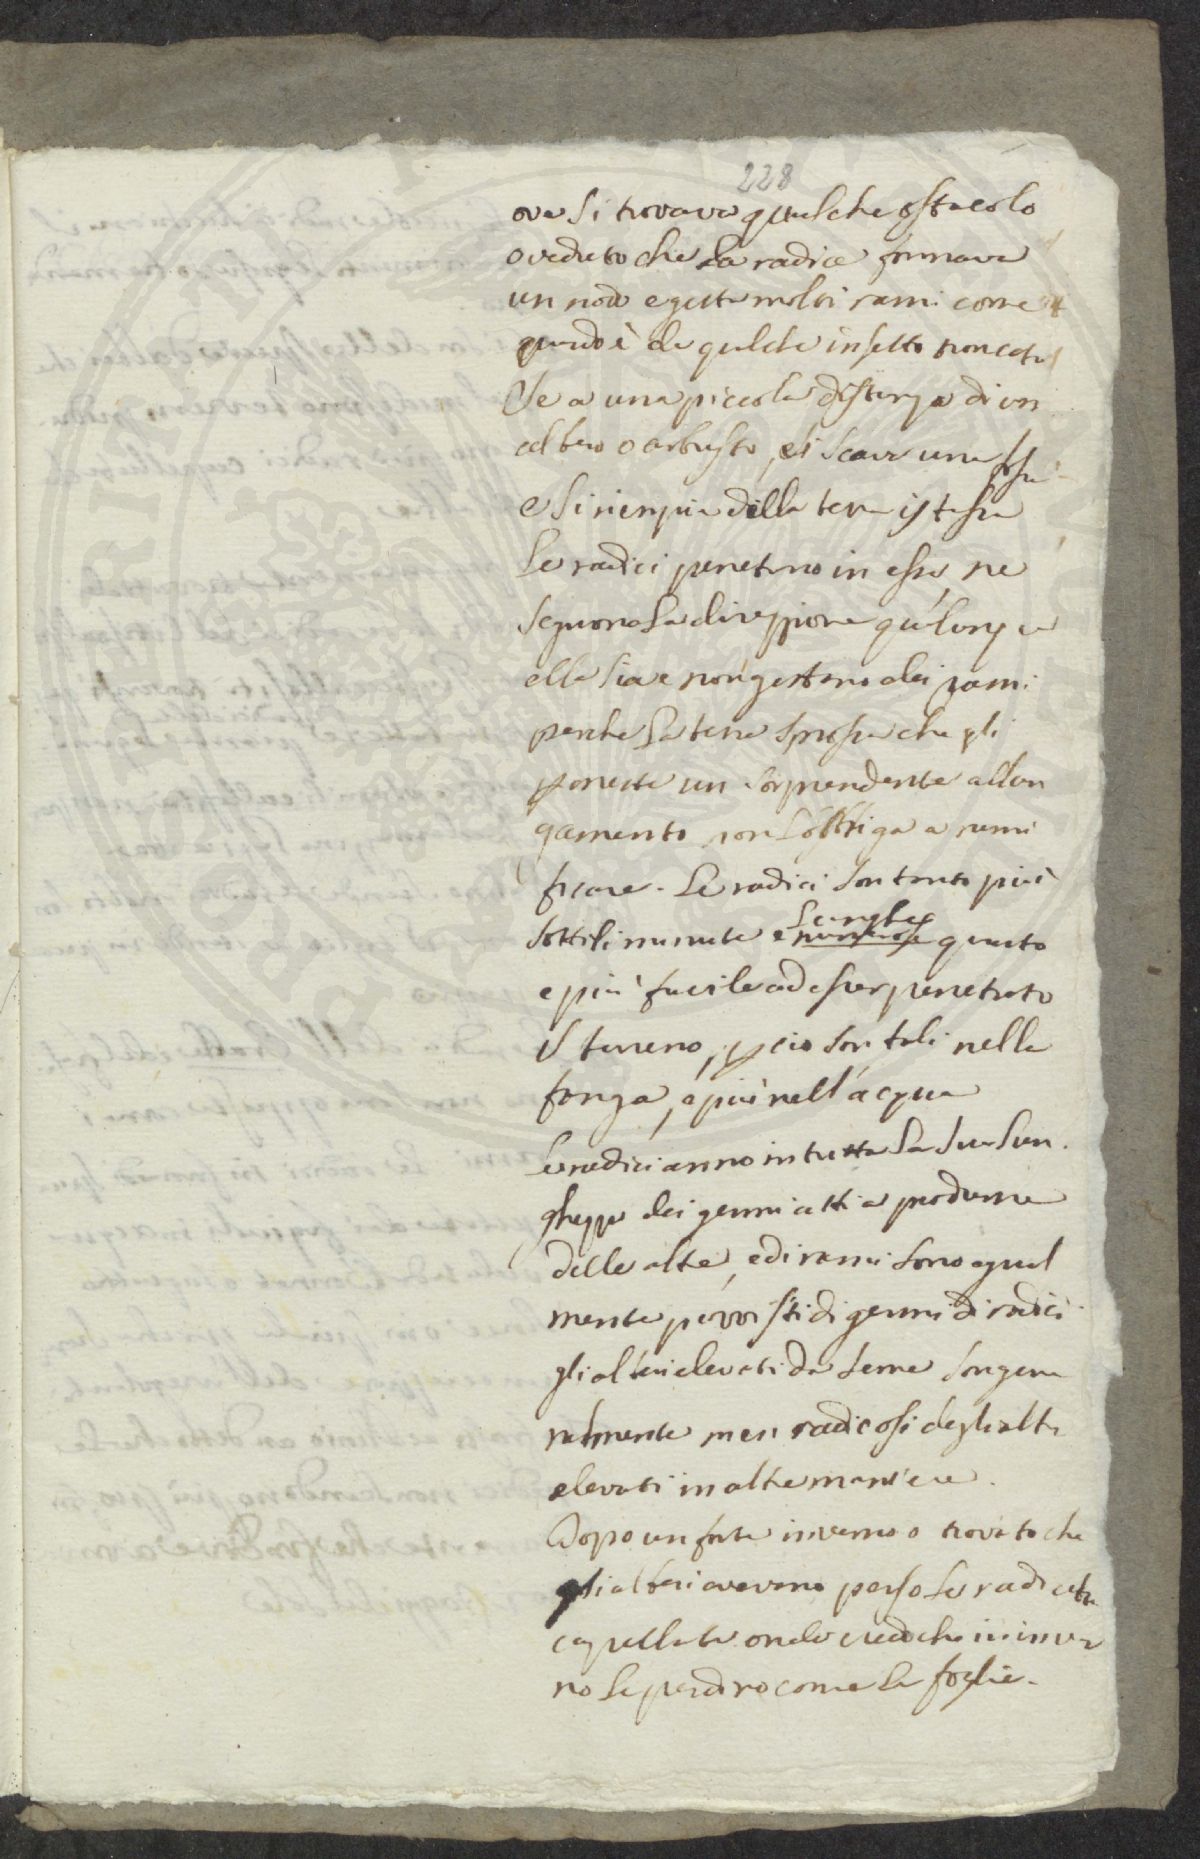 228
ove si trovava qualche ostacolo
o veduto che la radice formava
un nodo e getta molti rami come
quando è da qualche insetto roncata
Se a una piccola distanza di un
albero o arbusto, si scava una fossa
e si riempia della terra istessa
le radici penetrano in essa, ne
seguono la direzzione qualunque
ella sia e non gettano dei rami
perche la terra smossa che gli
permette un sorprendente allun
gamento non l'obbliga a rami
ficare. Le radici son tanto più
sottili minute e numerose lunghe quanto
e più facile ad esser penetrato
il terreno, per cio son tali nella
fanga, e più nell'acqua
Le radici anno in tutta la sua lun
ghezza dei germi atti a produrne
delle altre, ed i rami sono egual
mente provvisti di germi di radici
gli alberi elevati da seme son gene
ralmente men radicosi degli altri
elevati in altre maniere.
Dopo un forte inverno o trovato che
gli alberi avevano perso le radicette
capillate onde credo che in inver
no le perdino come le foglie.